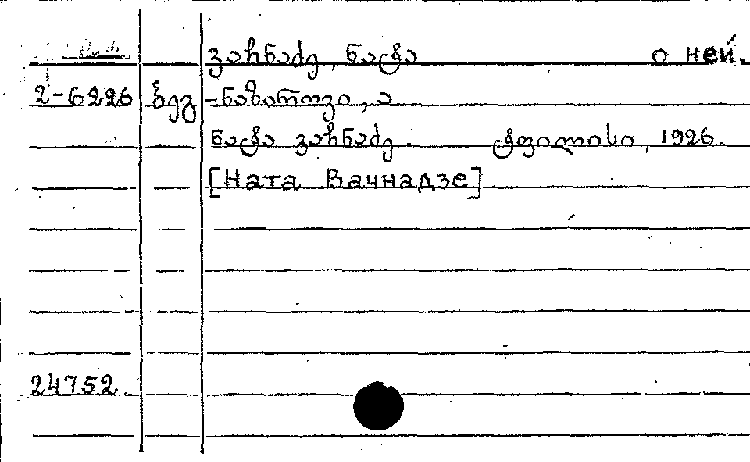 ვაჩნაძე, ნატა о ней.
2-6226 ბეგ-ნაზაროვი, ა
ნატა ვაჩნაძე. ტფილისი, 1926.
[Ната Вачнадзе]
24752.